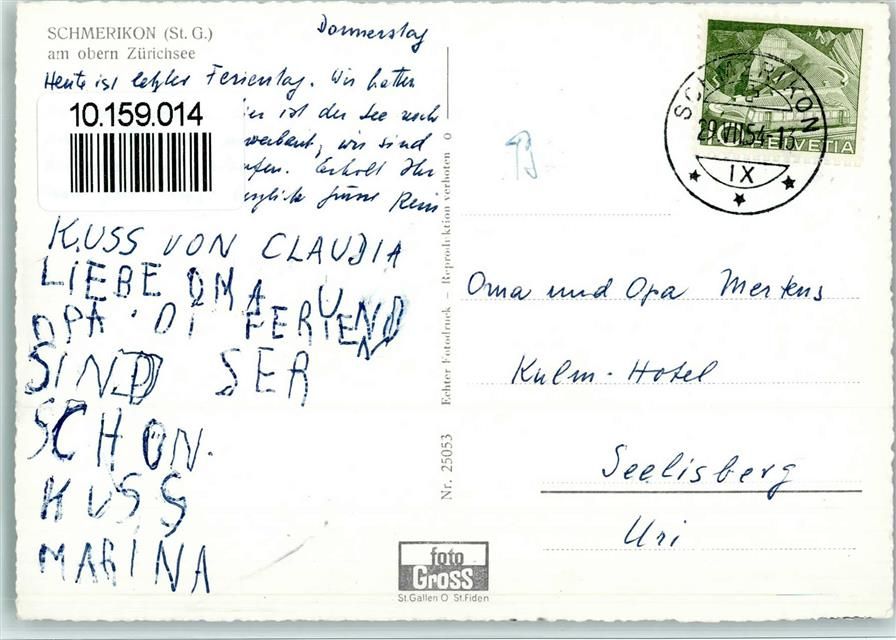 SCHMERIKON (St. G.)
am obern Zürichsee
Donnerstag
Heute ist letzter Ferientag. Wir hatten
10.159.014
ist der See noch
wir sind
Erholt Ihr
KUSS VON CLAUDIA
LIEBE OMA UND
OPA. DI FERIEN
SIND SER
SCHÖN.
KUSS
MARINA
Nr. 25053 Echter Fotodruck – Reproduktion verboten O
foto
GROSS
St.Gallen O St.Fiden
SCHMERIKON
29.VII.54-13
IX
10 HELVETIA
Oma und Opa Mertens
Kulm-Hotel
Seelisberg
Uri